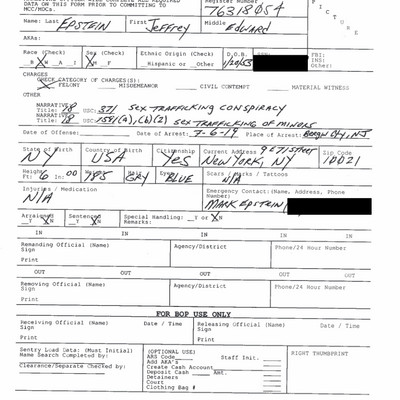 DATA ON THIS FORM PRIOR TO COMMITTING TO
MCC/MDCs.
Register Number
76318054
Name: Last EPSTEIN First Jeffrey Middle Edward
AKAs:
PICTURE
Race (Check) Sex (Check) Ethnic Origin (Check) D.O.B. FBI:
B W A I M F Hispanic or Other 1/20/53 INS:
Other:
CHARGES
CHECK CATEGORY OF CHARGES(S):
X FELONY MISDEMEANOR CIVIL CONTEMPT MATERIAL WITNESS
OTHER
NARRATIVE
Title: 18 USC: 371 SEX-TRAFFICKING CONSPIRACY
NARRATIVE
Title: 18 USC: 1591(a),(b)(2) SEX TRAFFICKING OF MINORS
Date of Offense: Date of Arrest: 7-6-19 Place of Arrest: NJ
State of Birth Country of Birth Citizenship Current Address 9 E 71 STREET Zip Code
NY USA Yes NEW YORK, NY 10021
Height Weight Hair Eyes Scars / Marks / Tattoos
Ft: 6 In: 00 185 GRY BLUE N/A
Injuries / Medication Emergency Contact: (Name, Address, Phone
Number)
N/A MARK EPSTEIN
Arraigned Sentenced Special Handling: Y or X N
Y X N Y X N Remarks:
IN IN IN IN IN
Remanding Official (Name) Agency/District Phone/24 Hour Number
Sign
Print
OUT OUT OUT OUT OUT
Removing Official (Name) Agency/District Phone/24 Hour Number
Sign
Print
FOR BOP USE ONLY
Receiving Official (Name) Date / Time Releasing Official (Name) Date / Time
Sign Sign
Print Print
Sentry Load Data: (Must Initial) (OPTIONAL USE) RIGHT THUMBPRINT
Name Search Completed by: ARS Code Staff Init.
Add AKA's
Clearance/Separatee Checked by: Create Cash Account
Deposit Cash Amt.
Detainers
Court
Clothing Bag #